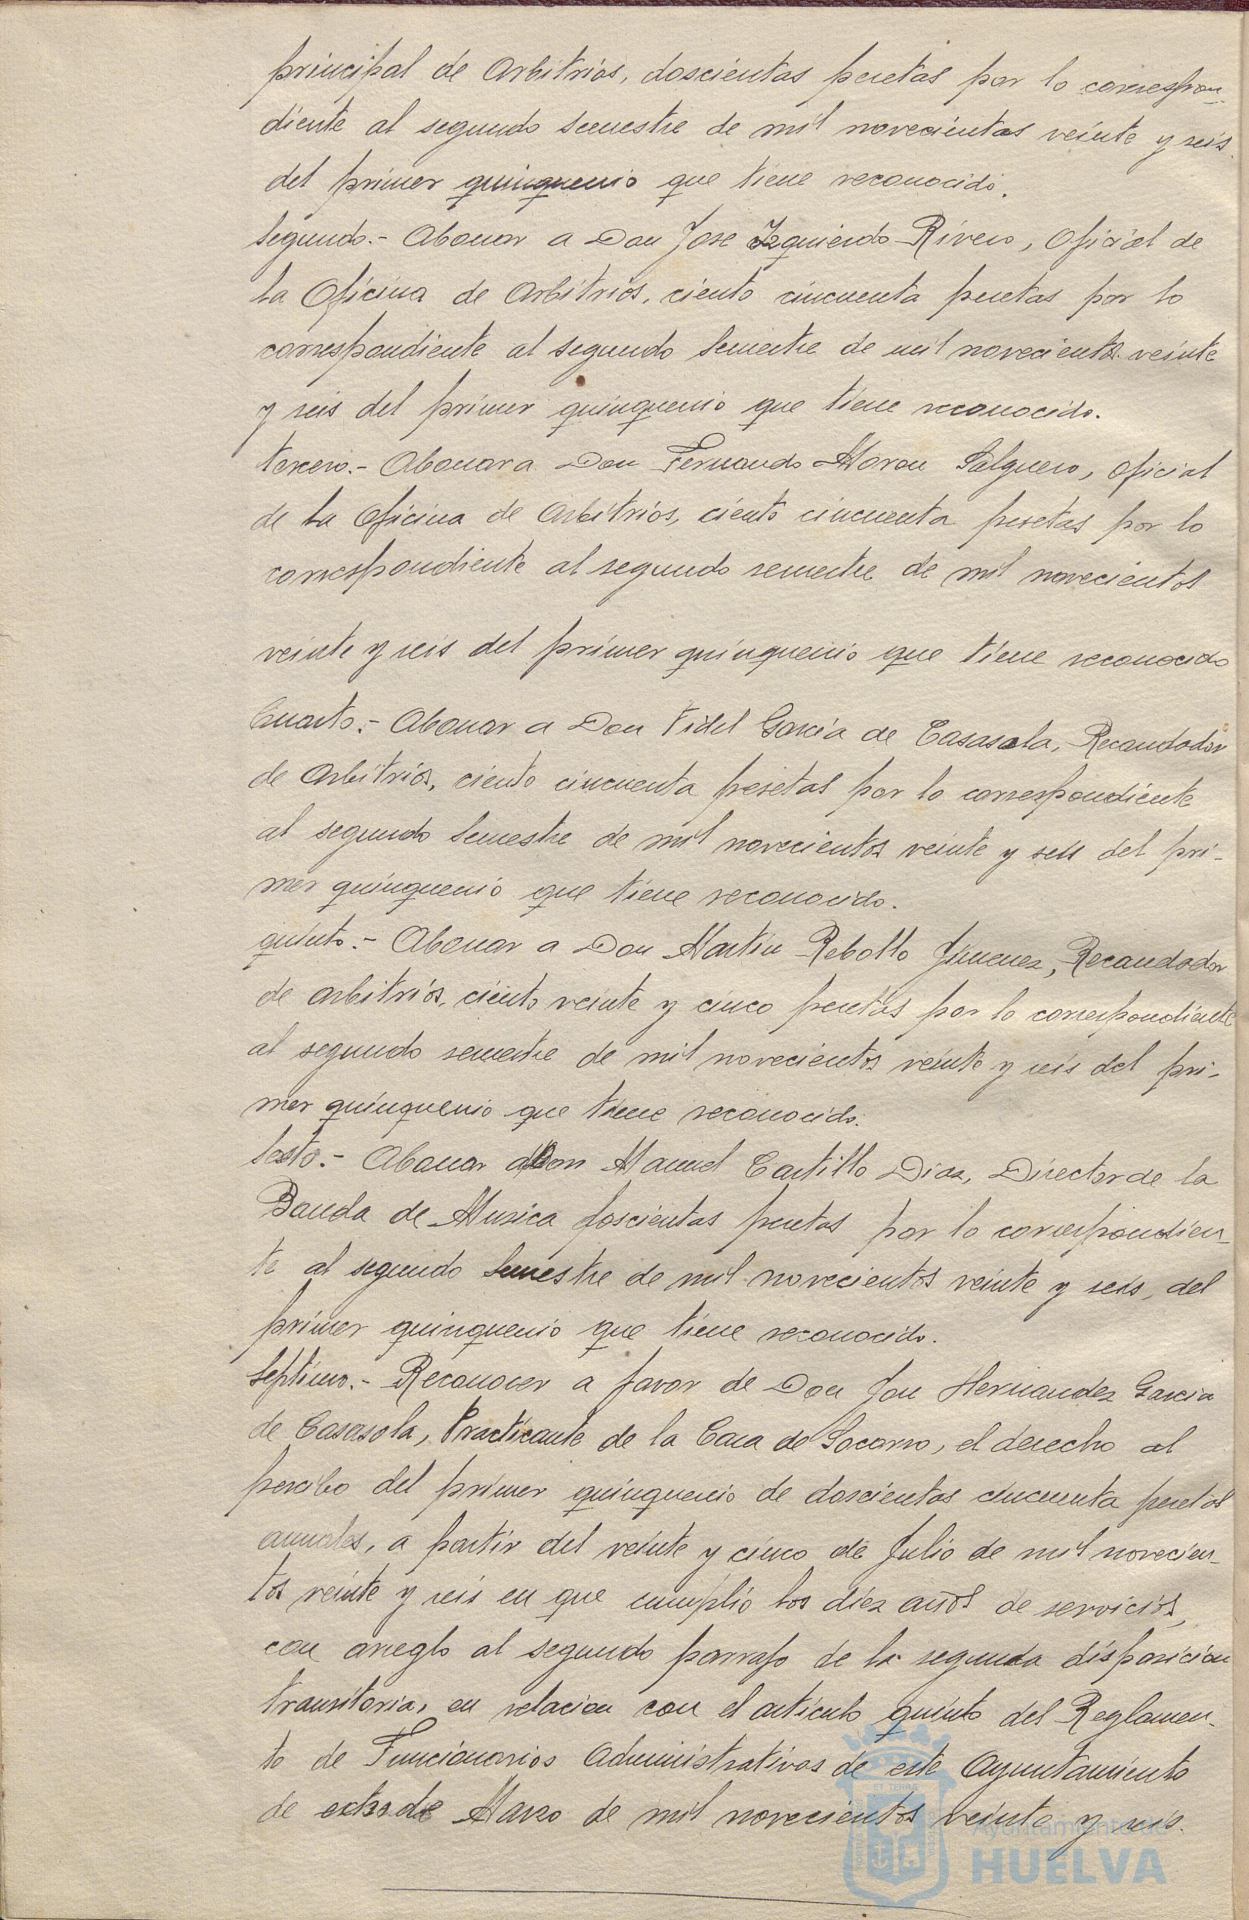 principal de Arbitrios, doscientas pesetas por lo correspon-
diente al segundo semestre de mil novecientos veinte y seis
del primer quinquenio que tiene reconocido.
Segundo.- Abonar a Don Jose Izquierdo Rivero, Oficial de
la Oficina de Arbitrios, ciento cincuenta pesetas por lo
correspondiente al segundo semestre de mil novecientos veinte
y seis del primer quinquenio que tiene reconocido.
tercero.- Abonar a Don Fernando Moron Salguero, Oficial
de la Oficina de Arbitrios, ciento cincuenta pesetas por lo
correspondiente al segundo semestre de mil novecientos
veinte y seis del primer quinquenio que tiene reconocido
Cuarto.- Abonar a Don Fidel Garcia de Casasola, Recaudador
de Arbitrios, ciento cincuenta pesetas por lo correspondiente
al segundo semestre de mil novecientos veinte y seis del pri-
mer quinquenio que tiene reconocido.
quinto.- Abonar a Don Martin Rebollo Jimenez, Recaudador
de arbitrios, ciento veinte y cinco pesetas por lo correspondiente
al segundo semestre de mil novecientos veinte y seis del pri-
mer quinquenio que tiene reconocido.
Sesto.- Abonar a Don Manuel Castillo Diaz, Director de la
Banda de Musica doscientas pesetas por lo correspondien-
te al segundo semestre de mil novecientos veinte y seis, del
primer quinquenio que tiene reconocido.
Septimo.- Reconocer a favor de Don Jose Hernandez Garcia
de Casasola, Practicante de la Casa de Socorro, el derecho al
percibo del primer quinquenio de doscientas cincuenta pesetas
anuales, a partir del veinte y cinco de Julio de mil novecien-
tos veinte y seis en que cumplio los diez años de servicios,
con arreglo al segundo parrafo de la segunda disposicion
transitoria, en relacion con el articulo quinto del Reglamen-
to de Funcionarios Administrativos de este Ayuntamiento
de ocho de Marzo de mil novecientos veinte y seis.
Ayuntamiento de
HUELVA